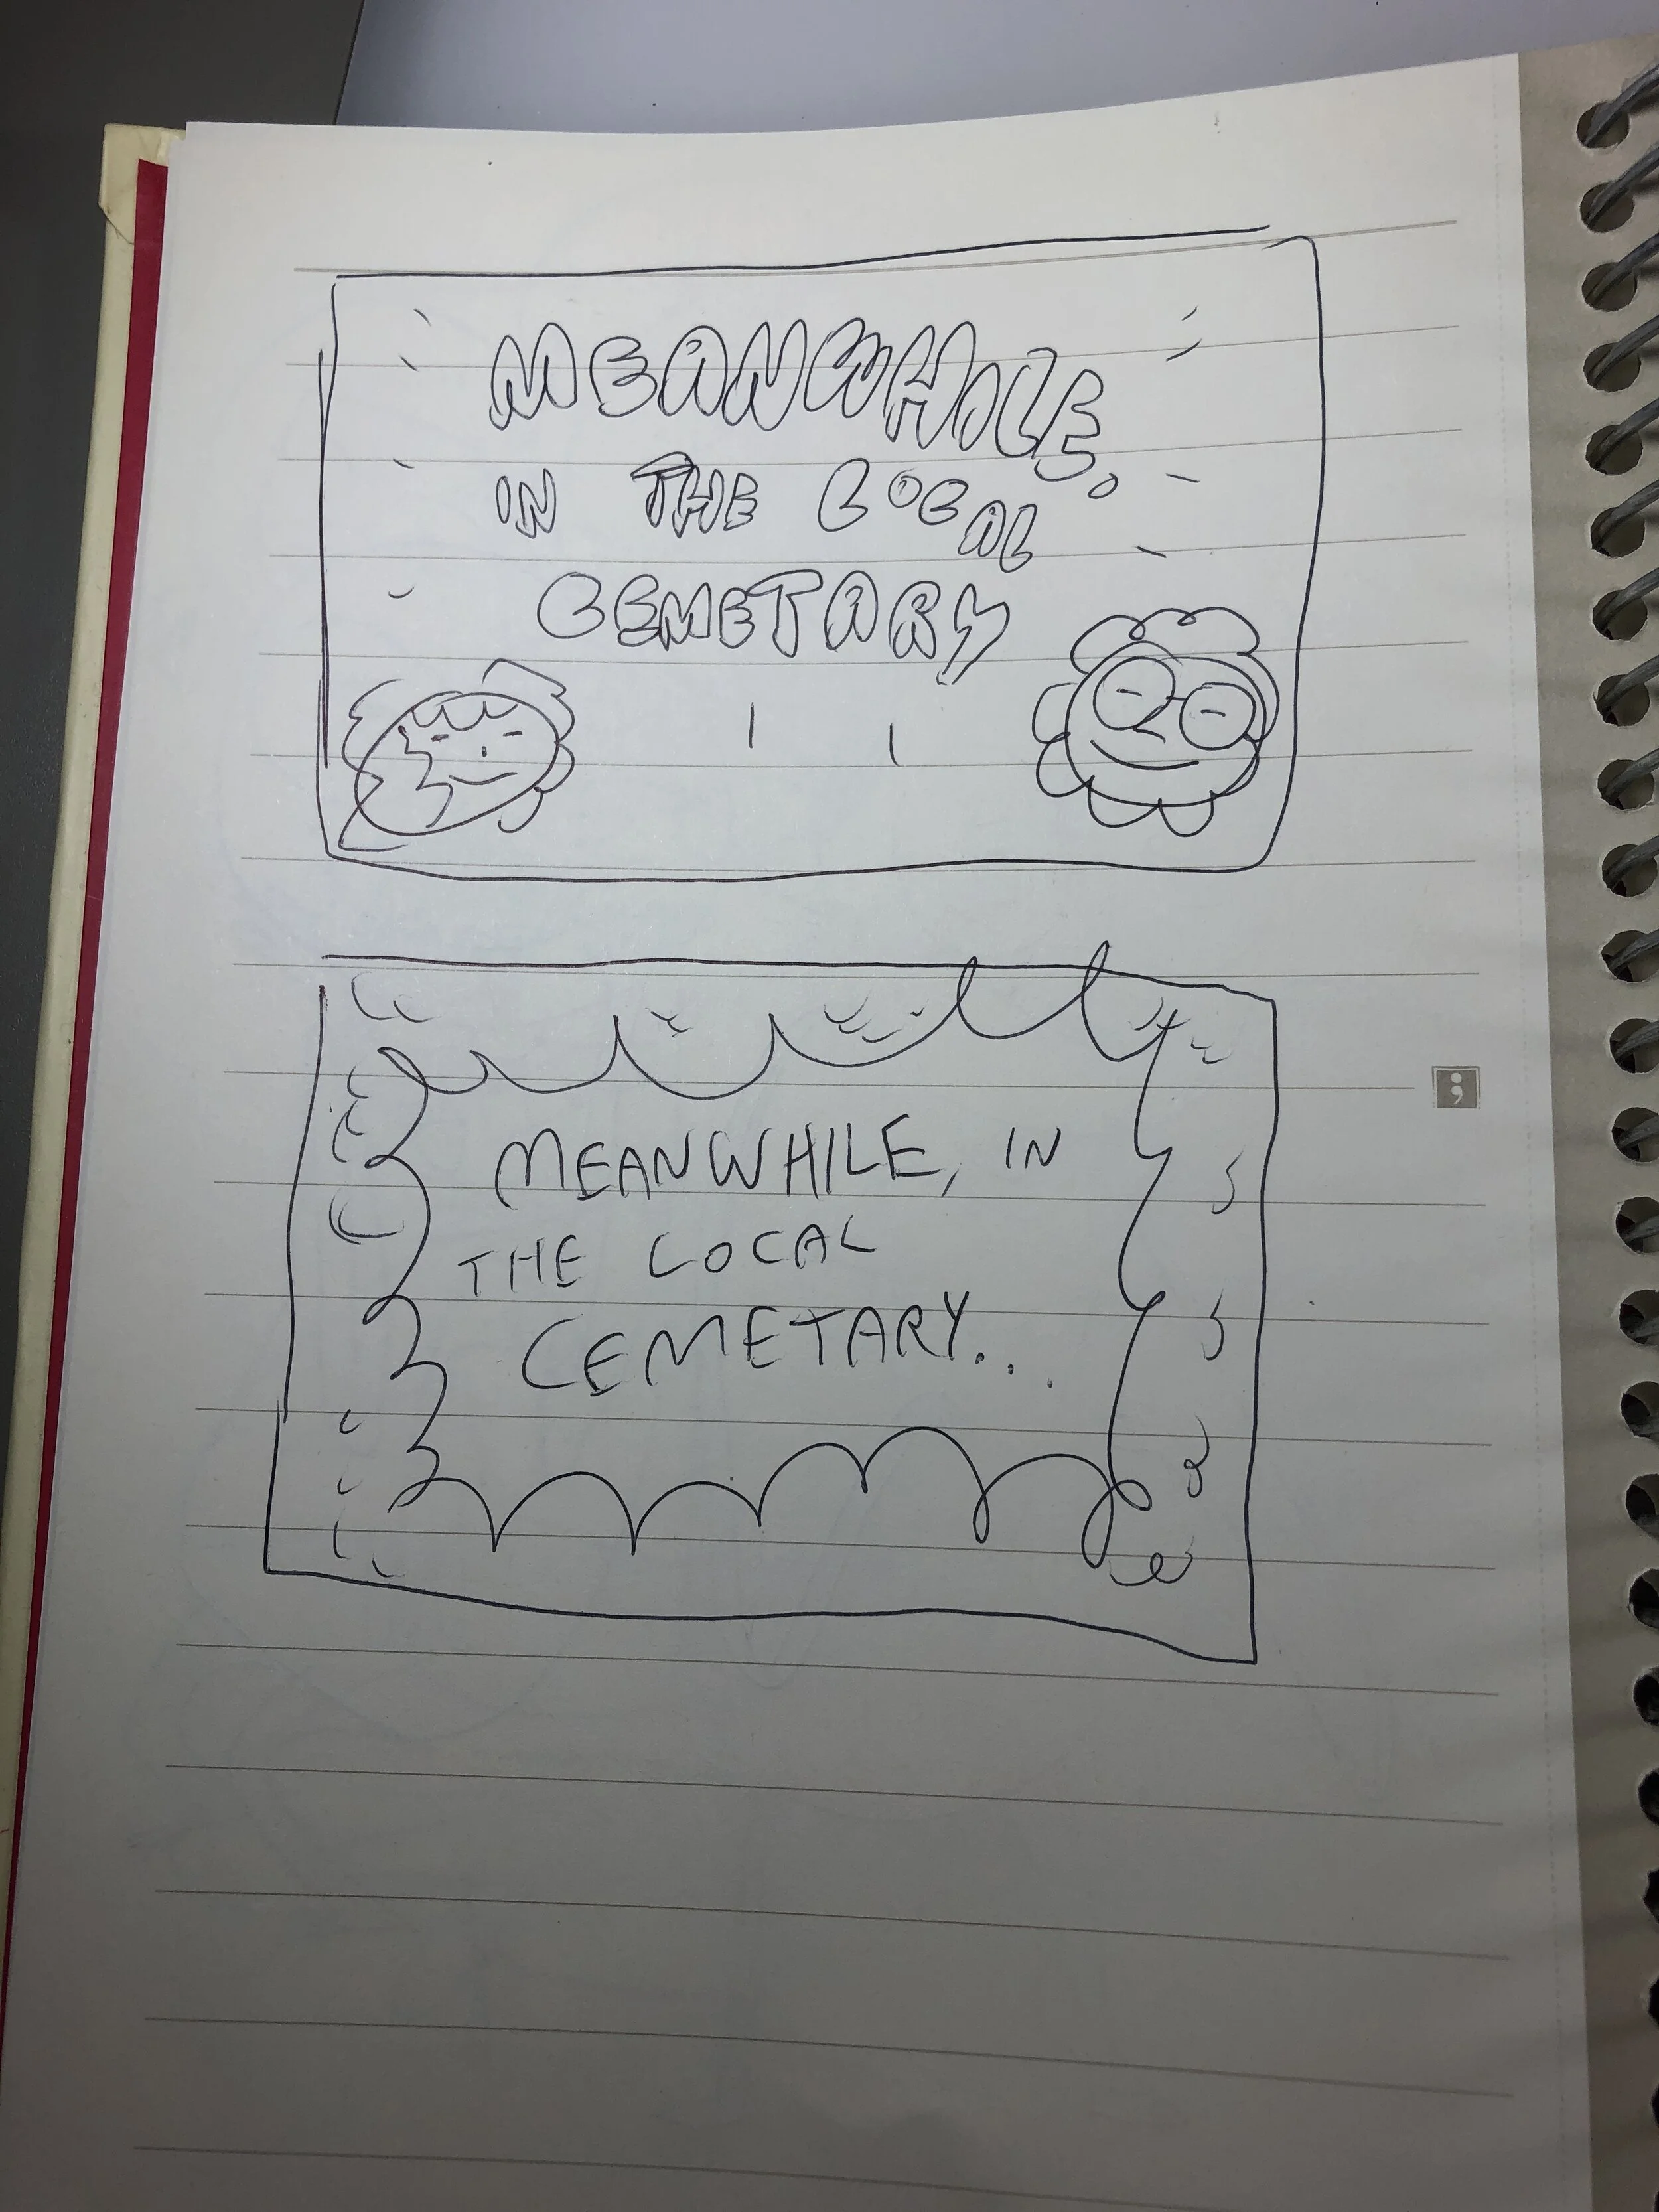 MEANWHILE,
IN THE LOCAL
CEMETARY
MEANWHILE, IN
THE LOCAL
CEMETARY...
;